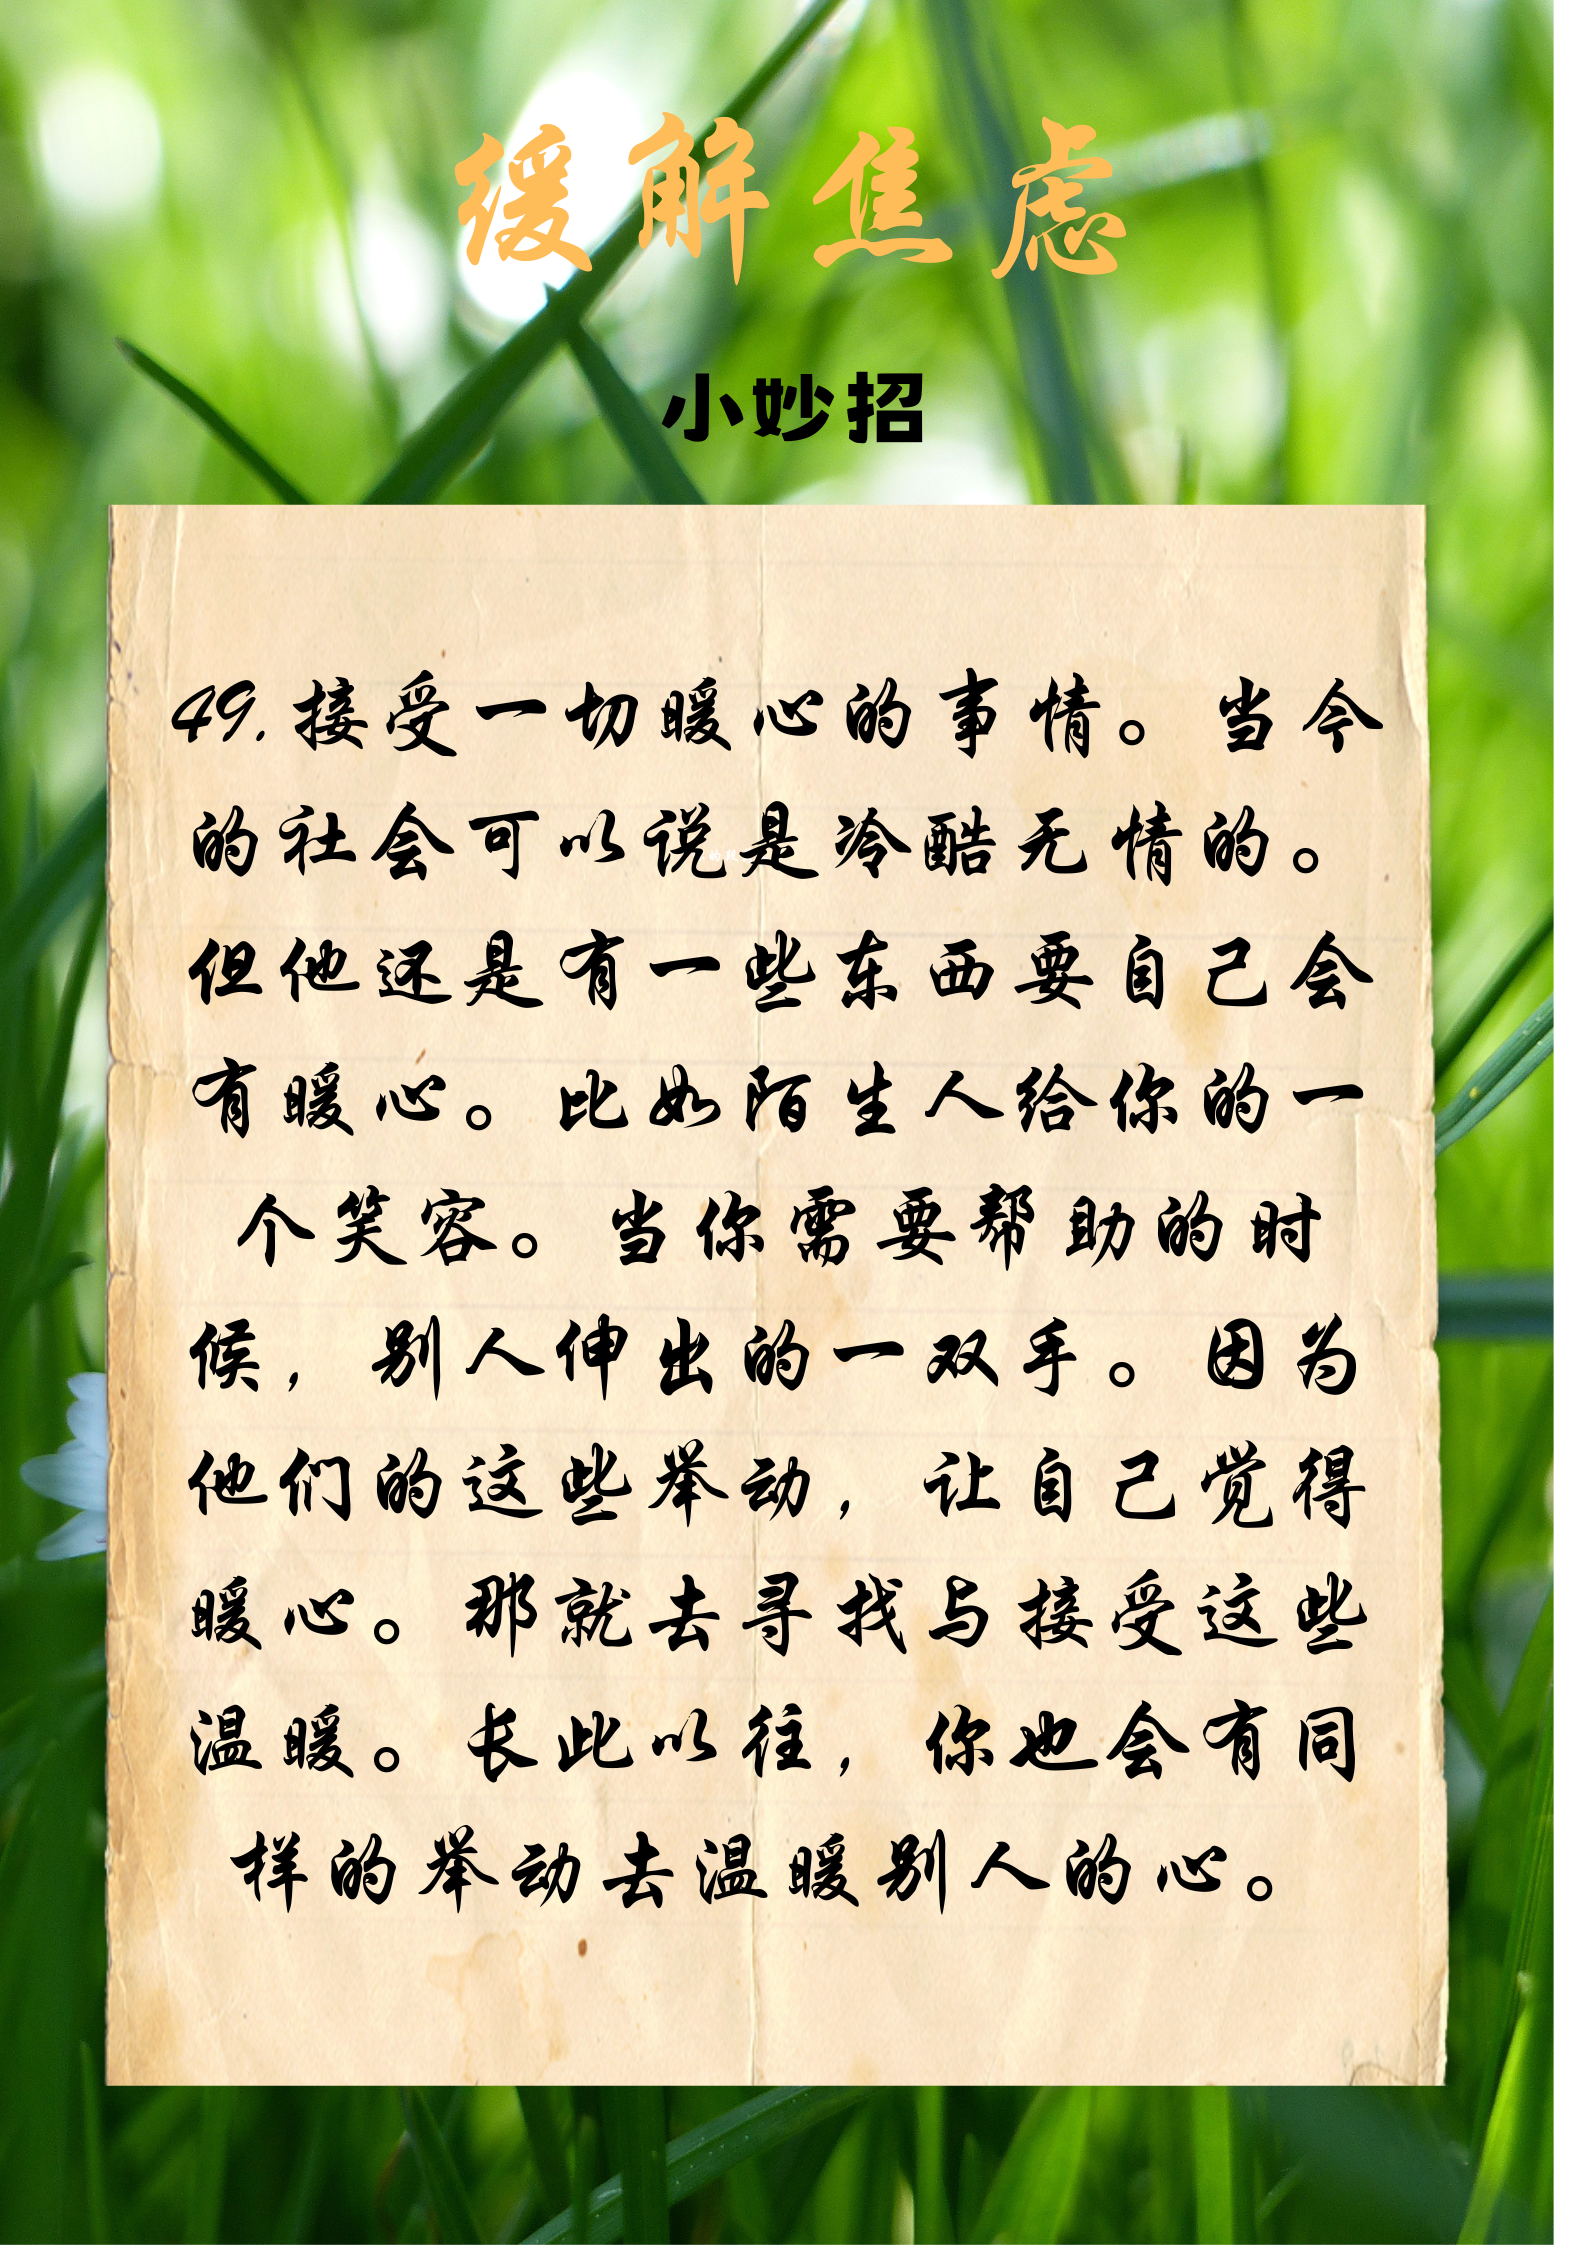 缓解焦虑
小妙招
49.接受一切暖心的事情。当今
的社会可以说是冷酷无情的。
但他还是有一些东西要自己会
有暖心。比如陌生人给你的一
个笑容。当你需要帮助的时
候，别人伸出的一双手。因为
他们的这些举动，让自己觉得
暖心。那就去寻找与接受这些
温暖。长此以往，你也会有同
样的举动去温暖别人的心。